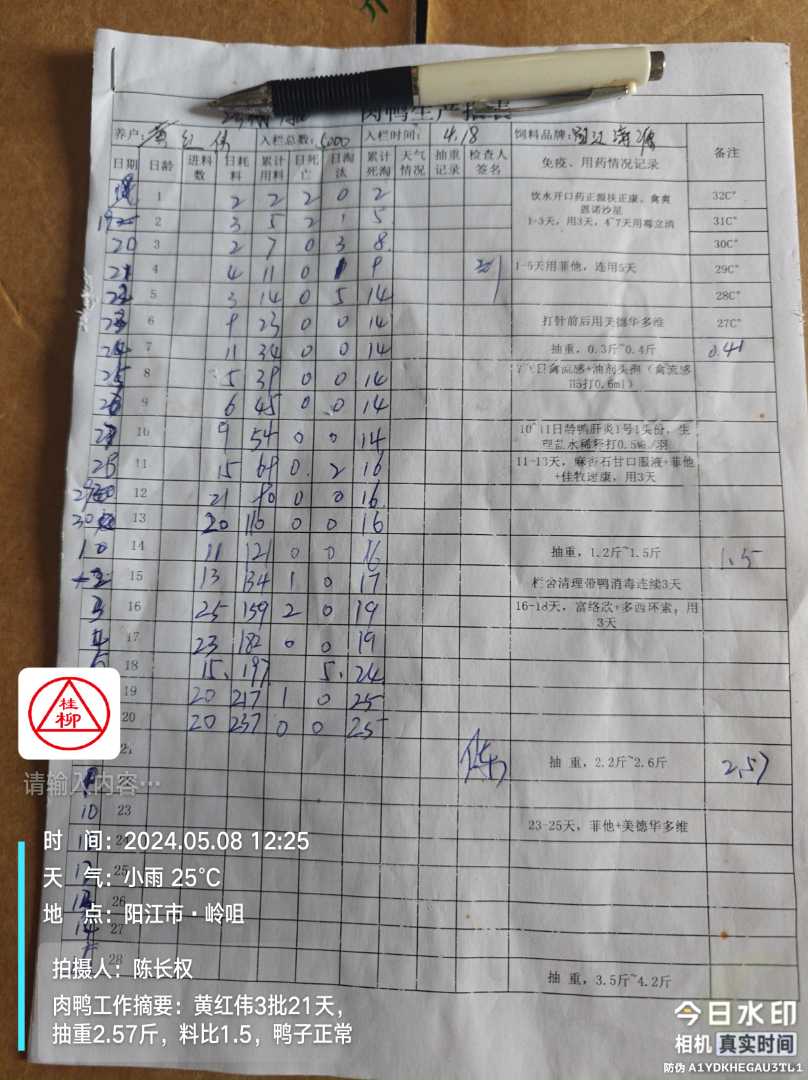 肉鸭生产报表
养户: 黄红伟 入栏总数: 5000 入栏时间: 4.18 饲料品牌:
日期 日龄 进料数 日耗料 累计用料 日死亡 日淘汰 累计死淘 天气情况 抽重记录 检查人签名 免疫、用药情况记录 备注
1 2 2 2 0 2 饮水开口药正源扶正康、禽爽 恩诺沙星 32C°
19 2 3 5 2 1 5 1-3天,用3天,4~7天用霉立消 31C°
20 3 2 7 0 3 8 30C°
21 4 4 11 0 1 9 1-5天用菲他,连用5天 29C°
22 5 3 14 0 5 14 28C°
23 6 9 23 0 0 14 打针前后用美德华多维 27C°
24 7 11 34 0 0 14 抽重,0.3斤~0.4斤 0.41
25 8 5 39 0 0 14 日禽流感+油剂头孢(禽流感
H5打0.6ml)
26 9 6 45 0 0 14
27 10 9 54 0 0 14 10~11日龄鸭肝炎1号1头份,生
理盐水稀释打0.5ml/羽
28 11 15 69 0 2 16 11-13天,麻杏石甘口服液+菲他
+佳牧速康,用3天
29 12 21 90 0 0 16
30 13 20 110 0 0 16
1 14 11 121 0 0 16 抽重,1.2斤~1.5斤 1.5
2 15 13 134 1 0 17 栏舍清理带鸭消毒连续3天
3 16 25 159 2 0 19 16-18天,富络欣+多西环素,用
3天
4 17 23 182 0 0 19
5 18 15 197 5 24
19 20 217 1 0 25
20 20 237 0 0 25
21 抽重,2.2斤~2.6斤 2.57
10 23 23-25天,菲他+美德华多维
24
25
26
27
28 抽重,3.5斤~4.2斤
桂柳
请输入内容…
时 间:2024.05.08 12:25
天 气:小雨 25℃
地 点:阳江市·岭咀
拍摄人:陈长权
肉鸭工作摘要:黄红伟3批21天,
抽重2.57斤,料比1.5,鸭子正常
今日水印
相机 真实时间
防伪 A1YDKHEGAU3TL1